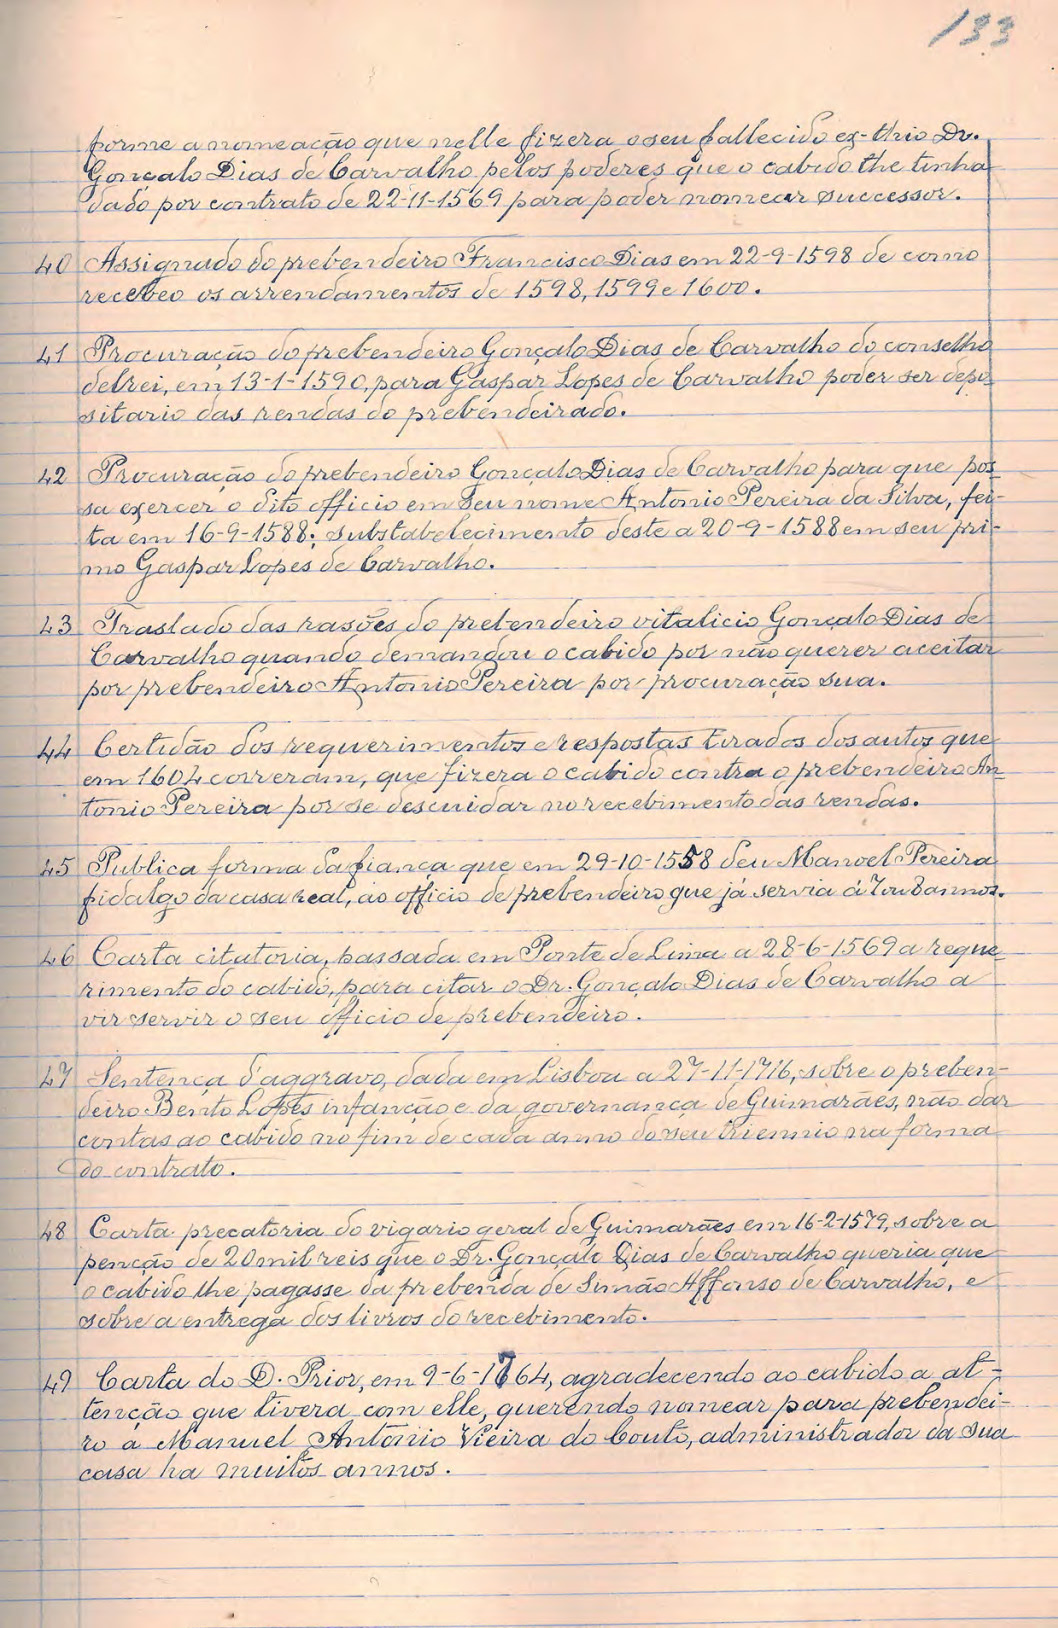 133
forme a nomeação que nelle fizera o seu fallecido ex-thio Dr.
Gonçalo Dias de Carvalho pelos poderes que o cabido lhe tinha
dado por contrato de 22-11-1569 para poder nomear successor.
40 Assignado do prebendeiro Francisco Dias em 22-9-1598 de como
recebeo os arrendamentos de 1598, 1599 e 1600.
41 Procuração do prebendeiro Gonçalo Dias de Carvalho do conselho
delrei, em 13-1-1590, para Gaspar Lopes de Carvalho poder ser depo
sitario das rendas do prebendeirado.
42 Procuração do prebendeiro Gonçalo Dias de Carvalho para que pos
sa exercer o dito officio em seu nome Antonio Pereira da Silva, fei-
ta em 16-9-1588; substabelecimento deste a 20-9-1588 em seu pri-
mo Gaspar Lopes de Carvalho.
43 Traslado das rasões do prebendeiro vitalicio Gonçalo Dias de
Carvalho quando demandou o cabido por não querer aceitar
por prebendeiro Antonio Pereira por procuração sua.
44 Certidão dos requerimentos e respostas tirados dos autos que
em 1604 correram, que fizera o cabido contra o prebendeiro An
tonio Pereira por se descuidar no recebimento das rendas.
45 Publica forma da fiança que em 29-10-1558 deu Manoel Pereira
fidalgo da casa real, ao officio de prebendeiro que já servia á 7 ou 8 annos.
46 Carta citatoria, passada em Ponte de Lima a 28-6-1569 a reque
rimento do cabido, para citar o Dr. Gonçalo Dias de Carvalho a
vir servir o seu officio de prebendeiro.
47 Sentença d'aggravo, dada em Lisboa a 27-11-1716, sobre o preben-
deiro Bento Lopes infanção e da governança de Guimarães, não dar
contas ao cabido no fim de cada anno do seu triennio na forma
do contrato.
48 Carta precatoria do vigario geral de Guimarães em 16-2-1579, sobre a
penção de 20 mil reis que o Dr. Gonçalo Dias de Carvalho queria que
o cabido lhe pagasse da prebenda de Simão Affonso de Carvalho, e
sobre a entrega dos livros do recebimento.
49 Carta do D. Prior, em 9-6-1764, agradecendo ao cabido a at-
tenção que tivera com elle, querendo nomear para prebendei-
ro a Manuel Antonio Vieira do Couto, administrador da sua
casa ha muitos annos.